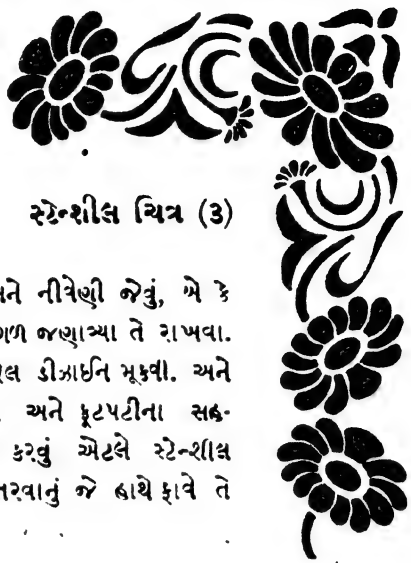 સ્ટેન્શીલ ચિત્ર (૩)
અને નીત્રેણી જેવું, એ કે
ગળ જણાવ્યા તે રાખવા.
રેલ ડીઝાઈન મૂકવી. અને
અને ફૂટપટીના સહ-
કરવું એટલે સ્ટેન્શીલ
તરવાનું જે હાથે ફાવે તે